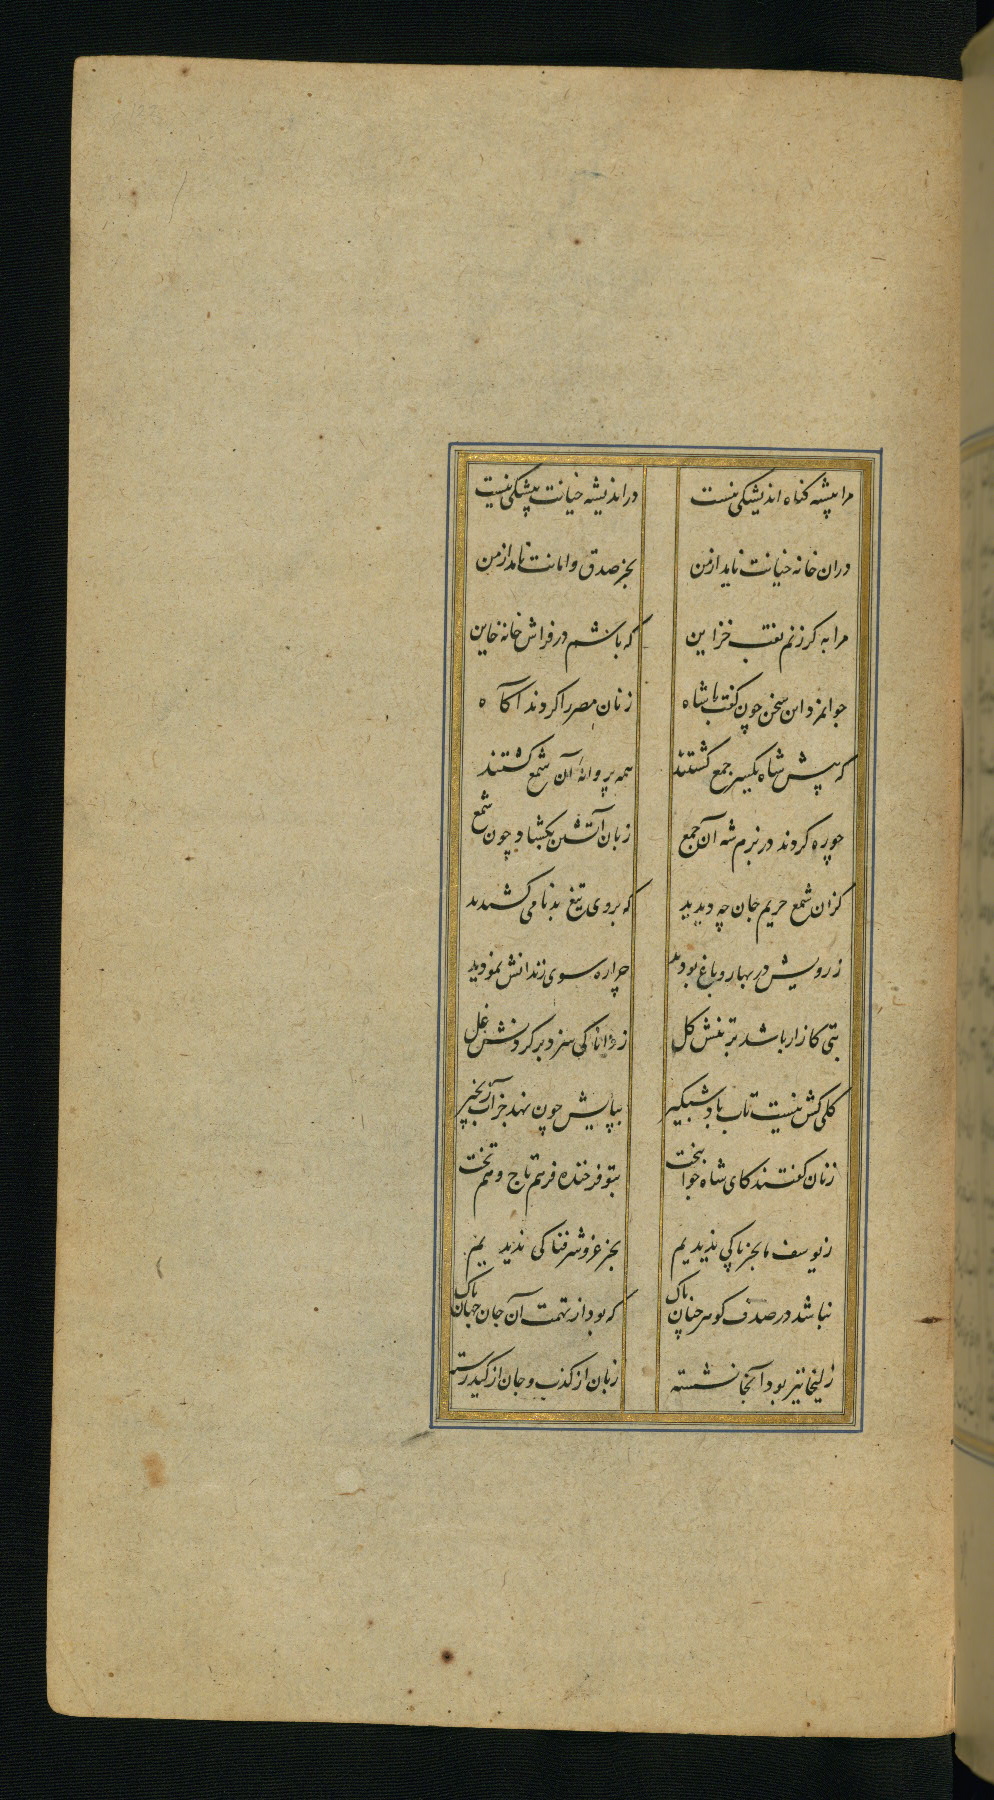 مرا پیشه کناه اندیشکی نیست در اندیشه خیانت پیشکی نیست
در ان خانه خیانت ناید از من بجز صدق و امانت ناید از من
مرا به کر زنم نقب خزاین که باشم در فراش خانه خاین
جوانمرد این سخن چون کفت با شاه زنان مصر را کردند آکاه
که پیش شاه یکسر جمع کشتند همه پروانهٔ آن شمع کشتند
چو ره کردند در بزم شه آن جمع زبان آتشین بکشاد چون شمع
کزان شمع حریم جان چه دیدید که بروی تیغ بدنامی کشیدید
ز رویش در بهار و باغ بودید چرا ره سوی زندانش نمودید
بتی کازار باشد بر تنش کل ز دانا کی سزد بر کردنش غل
کلی کش نیست تاب باد شبکیر بپایش چون نهد جز آب زنجیر
زنان کفتند کای شاه جوان بخت بتو فرخنده فر هم تاج و هم تخت
ز یوسف ما بجز پاکی ندیدیم بجز عز و شرفناکی ندیدیم
نباشد در صدف کوهر چنان پاک که بود از تهمت آن جان جهان پاک
زلیخا نیز بود آنجا نشسته زبان از کذب و جان از کید رسته